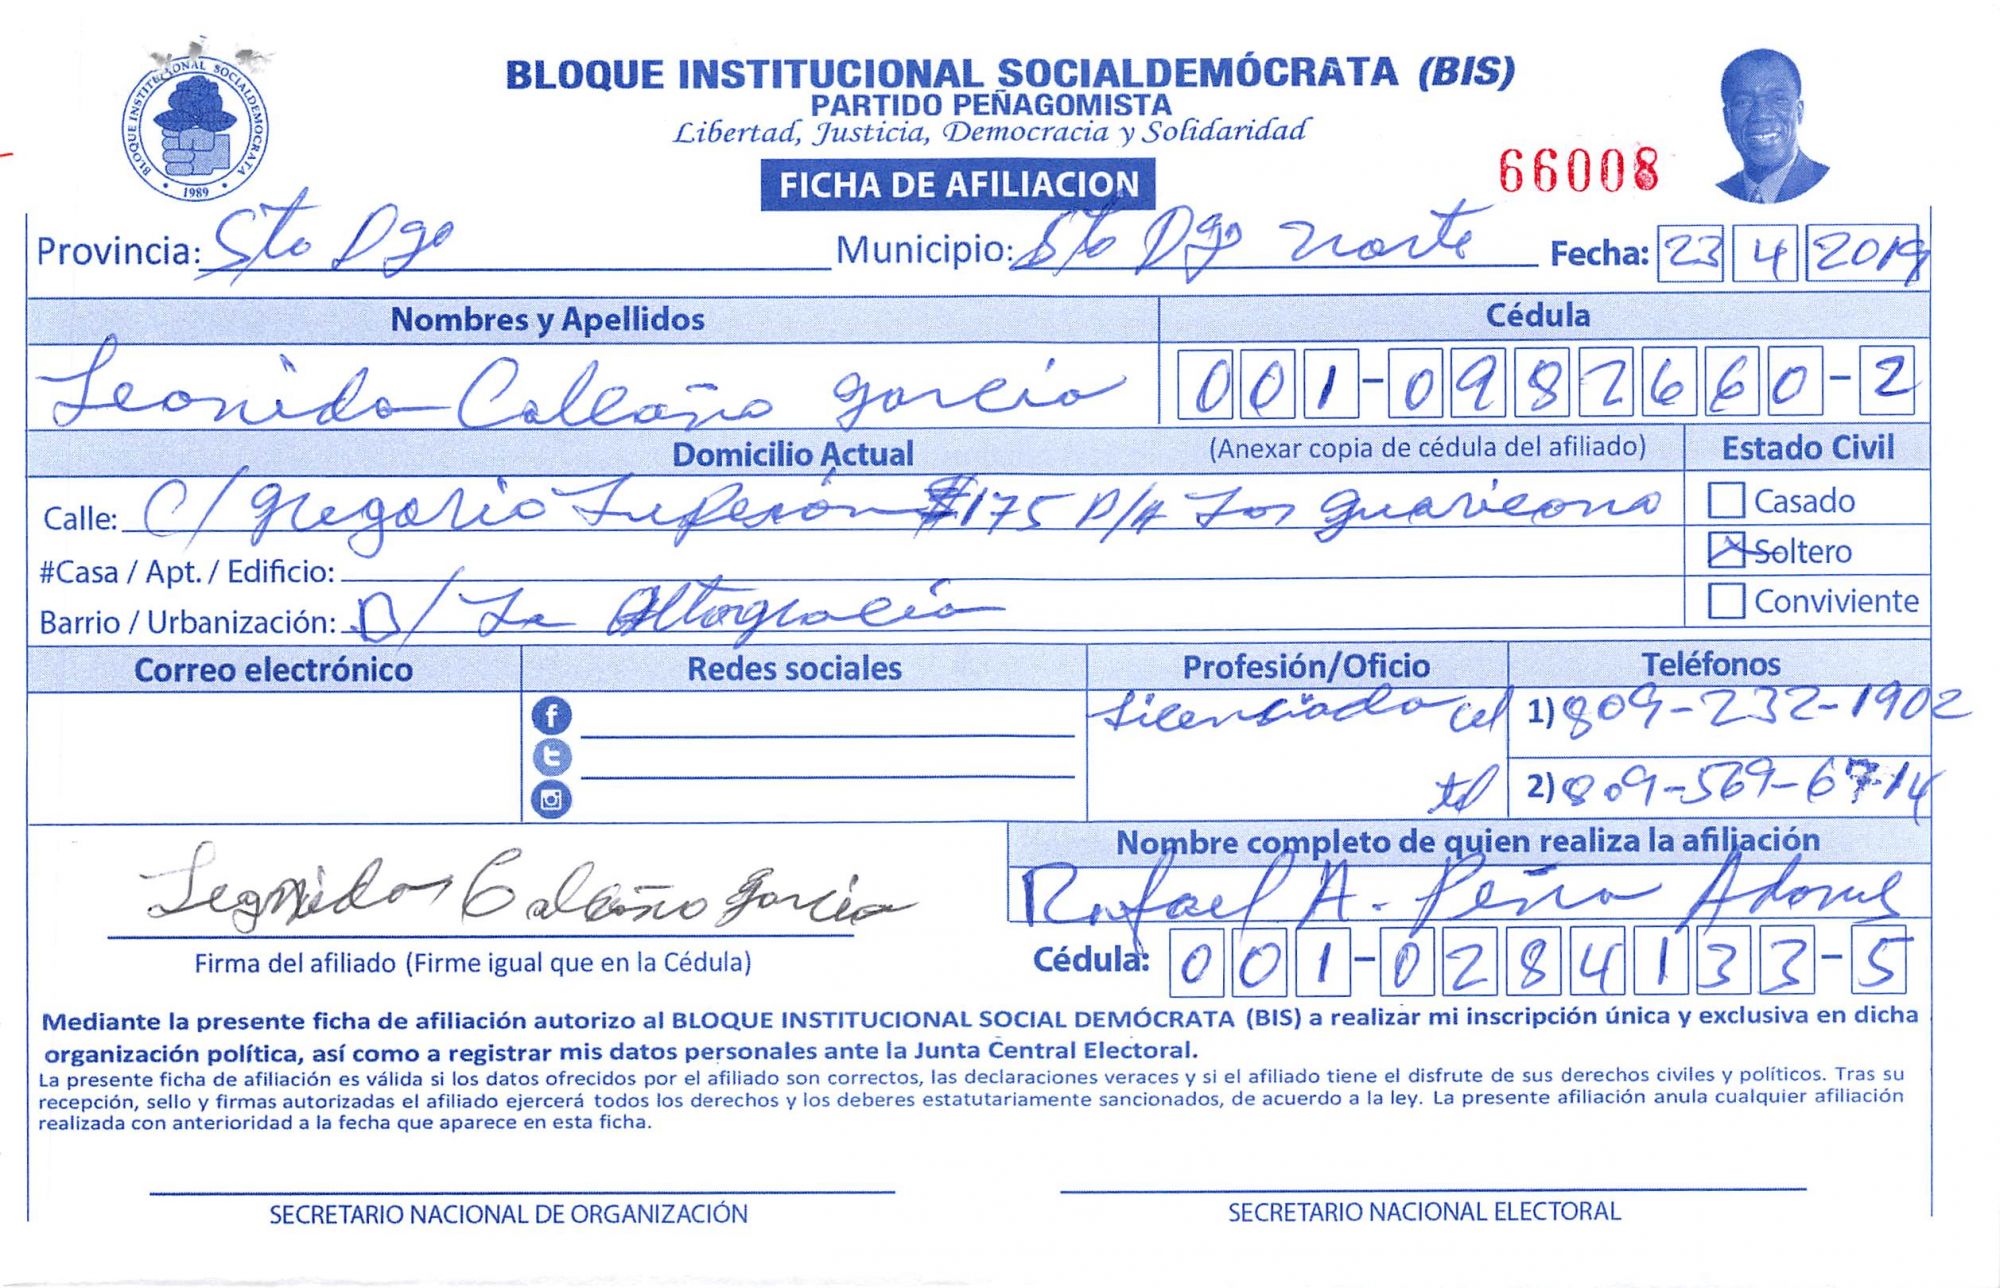 BLOQUE INSTITUCIONAL SOCIALDEMOCRATA
1989
BLOQUE INSTITUCIONAL SOCIALDEMÓCRATA (BIS)
PARTIDO PEÑAGOMISTA
Libertad, Justicia, Democracia y Solidaridad
FICHA DE AFILIACION
66008
Provincia: Sto Dgo Municipio: Sto Dgo norte Fecha: 23 4 2019
Nombres y Apellidos Cédula
Leonida Calcaño garcia 001-0982660-2
Domicilio Actual (Anexar copia de cédula del afiliado) Estado Civil
Calle: C/ gregorio Luperón #175 P/A Los guaricano Casado
#Casa / Apt. / Edificio: Soltero
Barrio / Urbanización: B/ La Altagracia Conviviente
Correo electrónico Redes sociales Profesión/Oficio Teléfonos
Licenciado cel 1) 809-232-1902
tel 2) 809-569-6714
Nombre completo de quien realiza la afiliación
Leonidas Calcaño garcia Rafael A. Peña Adames
Firma del afiliado (Firme igual que en la Cédula) Cédula: 001-0284133-5
Mediante la presente ficha de afiliación autorizo al BLOQUE INSTITUCIONAL SOCIAL DEMÓCRATA (BIS) a realizar mi inscripción única y exclusiva en dicha
organización política, así como a registrar mis datos personales ante la Junta Central Electoral.
La presente ficha de afiliación es válida si los datos ofrecidos por el afiliado son correctos, las declaraciones veraces y si el afiliado tiene el disfrute de sus derechos civiles y políticos. Tras su
recepción, sello y firmas autorizadas el afiliado ejercerá todos los derechos y los deberes estatutariamente sancionados, de acuerdo a la ley. La presente afiliación anula cualquier afiliación
realizada con anterioridad a la fecha que aparece en esta ficha.
SECRETARIO NACIONAL DE ORGANIZACIÓN SECRETARIO NACIONAL ELECTORAL